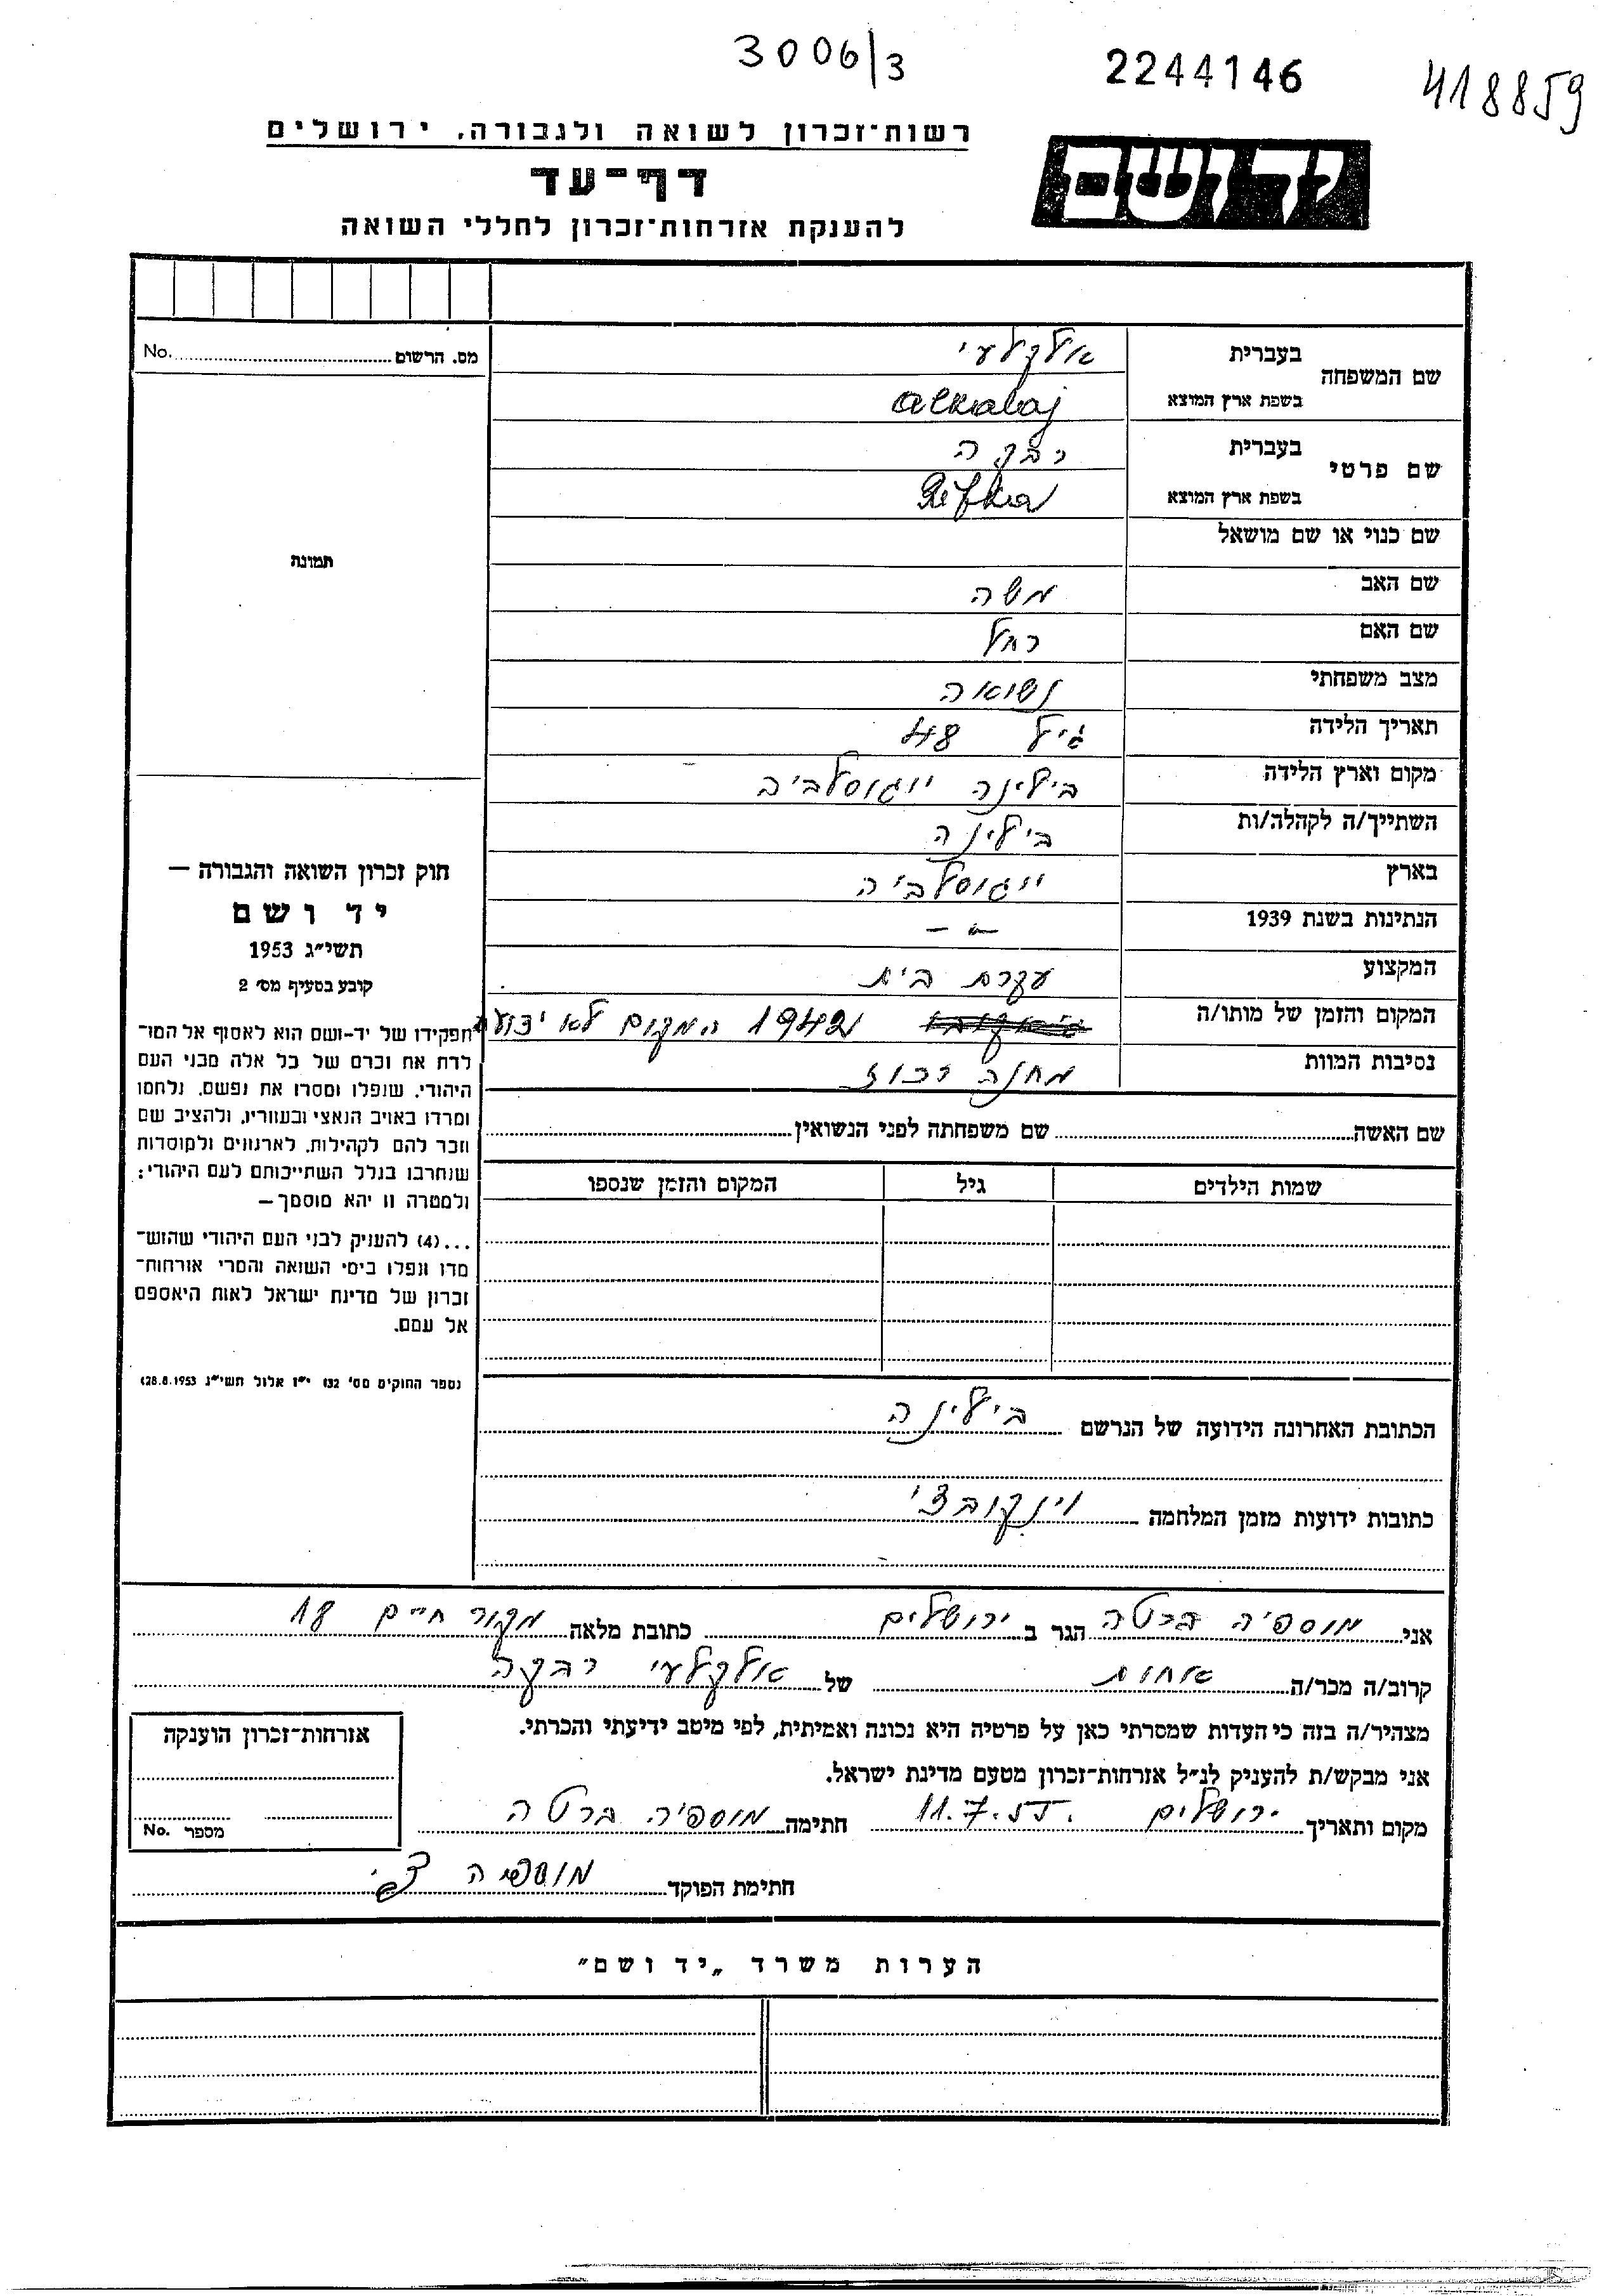 3006/3
2244146
418859
יד ושם
רשות־זכרון לשואה ולגבורה, ירושלים
דף־עד
להענקת אזרחות־זכרון לחללי השואה
מס. הרשום No.
תמונה
שם המשפחה בעברית אלקלעי
בשפת ארץ המוצא Alkalaj
שם פרטי בעברית רבקה
בשפת ארץ המוצא Rifka
שם כנוי או שם מושאל
שם האב משה
שם האם רחל
מצב משפחתי נשואה
תאריך הלידה גיל 48
מקום וארץ הלידה בילינה יוגוסלביה
השתייך/ה לקהלה/ות בילינה
בארץ יוגוסלביה
הנתינות בשנת 1939 – " –
המקצוע עקרת בית
המקום והזמן של מותו/ה 1942 המקום לא ידוע
נסיבות המוות מחנה רכוז
שם האשה שם משפחתה לפני הנשואין
שמות הילדים גיל המקום והזמן שנספו
חוק זכרון השואה והגבורה —
יד ושם
תשי״ג 1953
קובע בסעיף מס׳ 2
תפקידו של יד-ושם הוא לאסוף אל המו־
לדת את זכרם של כל אלה מבני העם
היהודי, שנפלו ומסרו את נפשם, נלחמו
ומרדו באויב הנאצי ובעוזריו, ולהציב שם
וזכר להם לקהילות, לארגונים ולמוסדות
שנחרבו בגלל השתייכותם לעם היהודי;
ולמטרה זו יהא מוסמך—
...(4) להעניק לבני העם היהודי שהוש־
מדו ונפלו בימי השואה והמרי אזרחות־
זכרון של מדינת ישראל לאות היאספם
אל עמם.
(ספר החוקים מס׳ 132 י״ז אלול תשי״ג 28.8.1953)
הכתובת האחרונה הידועה של הנרשם בילינה
כתובות ידועות מזמן המלחמה וינקובצי
אני מוספיה ברטה הגר ב ירושלים כתובת מלאה מקור חיים 18
קרוב/ה מכר/ה אחות של אלקלעי רבקה
מצהיר/ה בזה כי העדות שמסרתי כאן על פרטיה היא נכונה ואמיתית, לפי מיטב ידיעתי והכרתי.
אני מבקש/ת להעניק לנ״ל אזרחות־זכרון מטעם מדינת ישראל.
מקום ותאריך ירושלים 11.7.55. חתימה מוספיה ברטה
חתימת הפוקד מוספיה
אזרחות־זכרון הוענקה
מספר No.
הערות משרד „יד ושם״